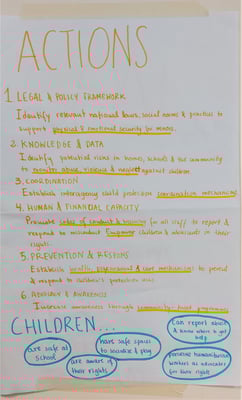 ACTIONS
1 LEGAL & POLICY FRAMEWORK
Identify relevant national laws, social norms & practices to
support physical & emotional security for minors.
2 KNOWLEDGE & DATA
Identify potential risks in homes, schools & the community
to monitor abuse, violence & neglect against children
3. COORDINATION
Establish interagency child protection coordination mechanisms
4. HUMAN & FINANCIAL CAPACITY
Promote codes of conduct & training for all staff to report &
respond to misconduct Empower children & adolescents in their
rights.
5. PREVENTION & RESPONS
Establish health, psychosocial & care mechanisms to prevent &
respond to children's protection
6 ADVOCACY & AWARENESS
Increase awareness through community-based programmes
CHILDREN...
are safe at
school
are aware of
their rights
have safe spaces
to socialize & play
can report abuse
& know where to get
help
perceive humanitarian
workers as advocates
for their rights